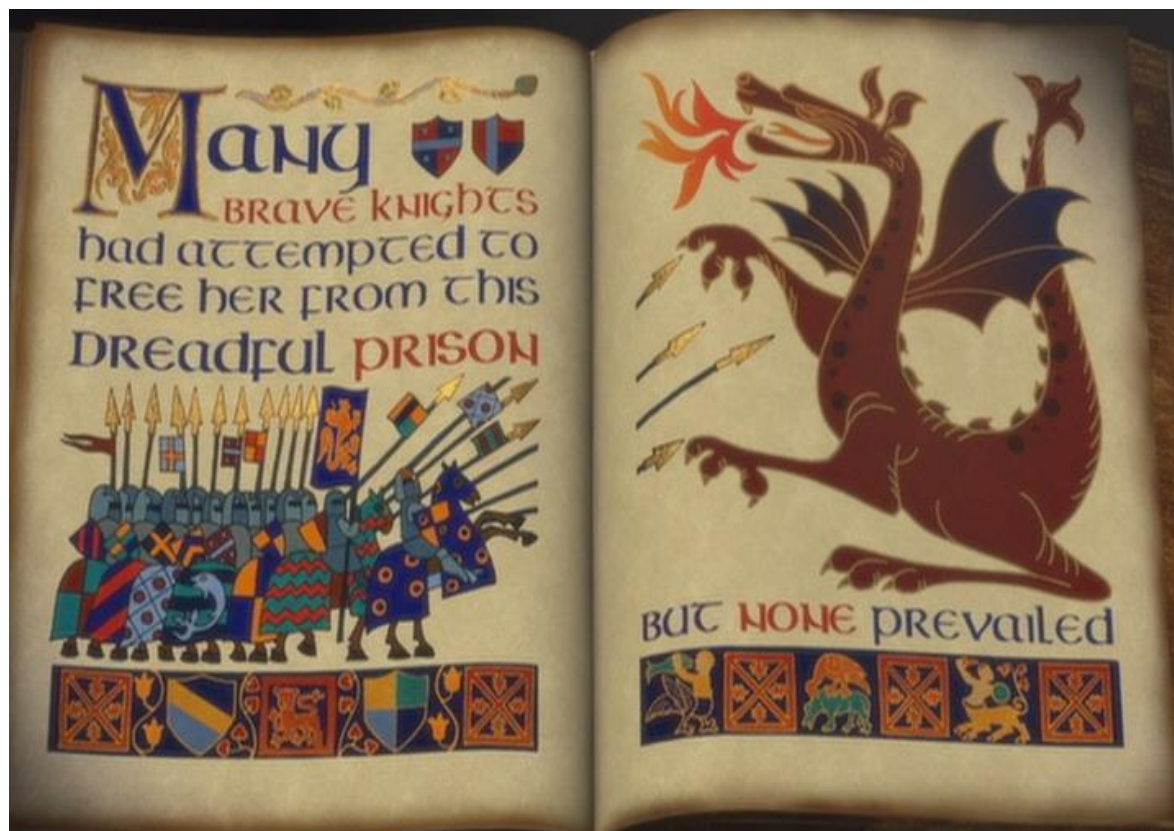 Many
brave knights
had attempted to
free her from this
dreadful prison
but none prevailed